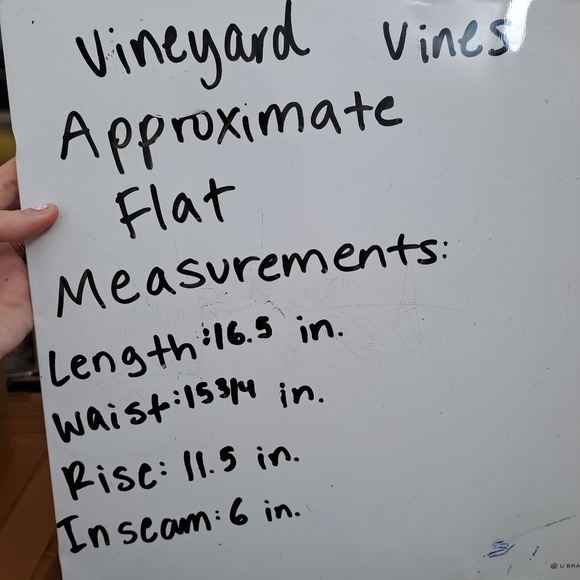 Vineyard Vines
Approximate
Flat
Measurements:
Length: 16.5 in.
Waist: 15 3/4 in.
Rise: 11.5 in.
Inseam: 6 in.
U BRA